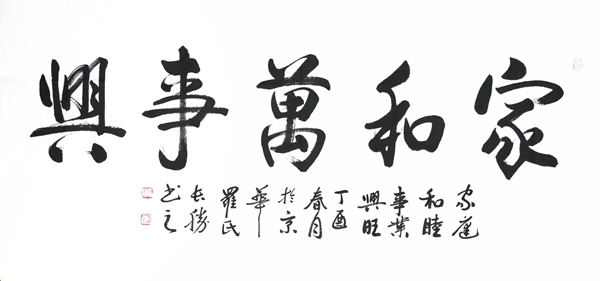 家和萬事興
家庭
和睦
事業
興旺
丁酉
春月
於京
華
羅氏
長勝
书之